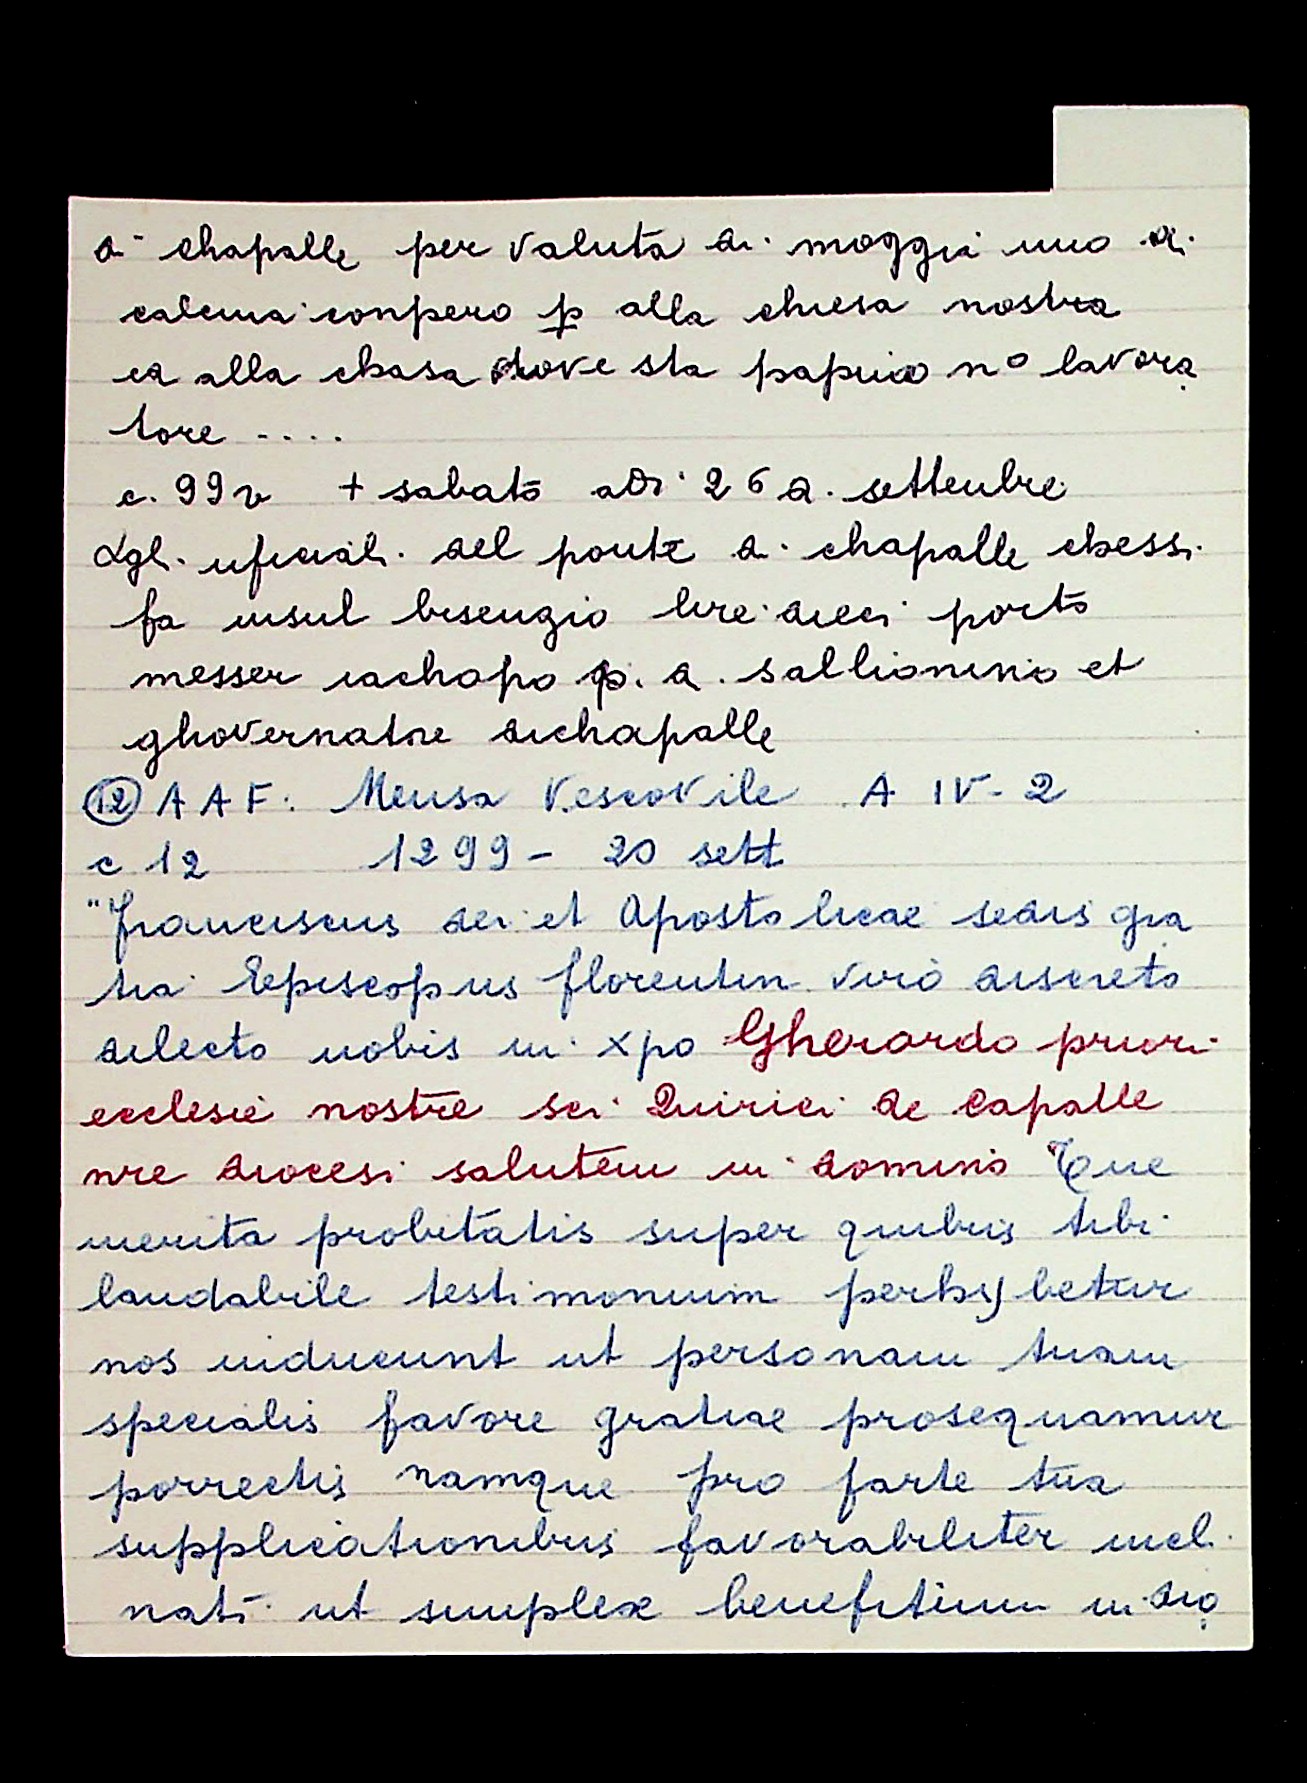 di chapalle per valuta di moggia uno di
calcina conpero p alla chiesa nostra
ed alla chasa dove sta papino nº lavora
tore ....
c. 99v + sabato adi 26 di settenbre
Agli uficiali del ponte di chapalle chessi
fa insul bisenzio lire dieci porto
messer iachopo p. di sallionino et
ghovernatore dichapalle
(12) A A F. Mensa Vescovile A IV-2
c 12 1299 - 20 sett
"Franciscus dei et Apostolicae sedis gra
tia Episcopus florentin viro discreto
dilecto nobis in xpo Gherardo priori
ecclesie nostre sci Quirici de Capalle
nre diocesi salutem in domino Tue
merita probitatis super quibus tibi
laudabile testimonium perhybetur
nos inducunt ut personam tuam
specialis favore gratiae prosequamur
porrectis namque pro parte tua
supplicationibus favorabiliter incl
nati ut simplex benefitium in dio